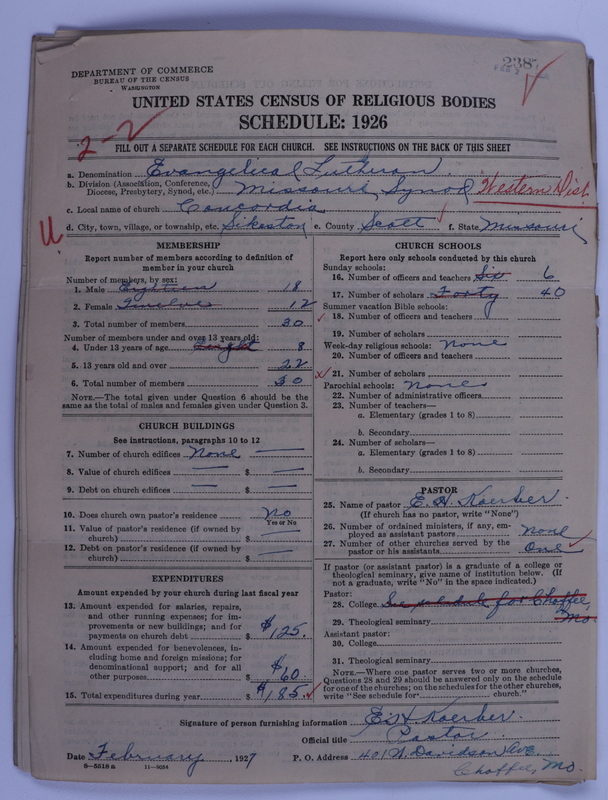 238
FEB
DEPARTMENT OF COMMERCE
BUREAU OF THE CENSUS
WASHINGTON
UNITED STATES CENSUS OF RELIGIOUS BODIES
SCHEDULE: 1926
2-2
FILL OUT A SEPARATE SCHEDULE FOR EACH CHURCH. SEE INSTRUCTIONS ON THE BACK OF THIS SHEET
a. Denomination Evangelical Lutheran
b. Division (Association, Conference, Diocese, Presbytery, Synod, etc.) Missouri Synod Western Dist.
c. Local name of church Concordia
d. City, town, village, or township, etc. Sikeston e. County Scott f. State Missouri
U
MEMBERSHIP
Report number of members according to definition of
member in your church
Number of members, by sex:
1. Male Eighteen 18
2. Female Twelve 12
3. Total number of members 30
Number of members under and over 13 years old:
4. Under 13 years of age Eight 8
5. 13 years old and over 22
6. Total number of members 30
NOTE.—The total given under Question 6 should be the
same as the total of males and females given under Question 3.
CHURCH BUILDINGS
See instructions, paragraphs 10 to 12
7. Number of church edifices None
8. Value of church edifices $
9. Debt on church edifices $
10. Does church own pastor's residence? No
Yes or No
11. Value of pastor's residence (if owned by
church) $
12. Debt on pastor's residence (if owned by
church) $
EXPENDITURES
Amount expended by your church during last fiscal year
13. Amount expended for salaries, repairs,
and other running expenses; for im-
provements or new buildings; and for
payments on church debt $125.
14. Amount expended for benevolences, in-
cluding home and foreign missions; for
denominational support; and for all
other purposes $60.
15. Total expenditures during year $185.
CHURCH SCHOOLS
Report here only schools conducted by this church
Sunday schools:
16. Number of officers and teachers Six 6
17. Number of scholars Forty 40
Summer vacation Bible schools:
18. Number of officers and teachers
19. Number of scholars
Week-day religious schools: None
20. Number of officers and teachers
21. Number of scholars
Parochial schools: None
22. Number of administrative officers
23. Number of teachers—
a. Elementary (grades 1 to 8)
b. Secondary
24. Number of scholars—
a. Elementary (grades 1 to 8)
b. Secondary
PASTOR
25. Name of pastor E. H. Koerber.
(If church has no pastor, write "None")
26. Number of ordained ministers, if any, em-
ployed as assistant pastors None
27. Number of other churches served by the
pastor or his assistants One
If pastor (or assistant pastor) is a graduate of a college or
theological seminary, give name of institution below. (If
not a graduate, write "No" in the space indicated.)
Pastor:
28. College See schedule for Chaffee,
Mo
29. Theological seminary
Assistant pastor:
30. College
31. Theological seminary
NOTE.—Where one pastor serves two or more churches,
Questions 28 and 29 should be answered only on the schedule
for one of the churches; on the schedules for the other churches,
write "See schedule for church."
Signature of person furnishing information E. H. Koerber
Official title Pastor
Date February, 1927 P. O. Address 401 N. Davidson Ave.
8—5518 a 11—9024 Chaffee, Mo.